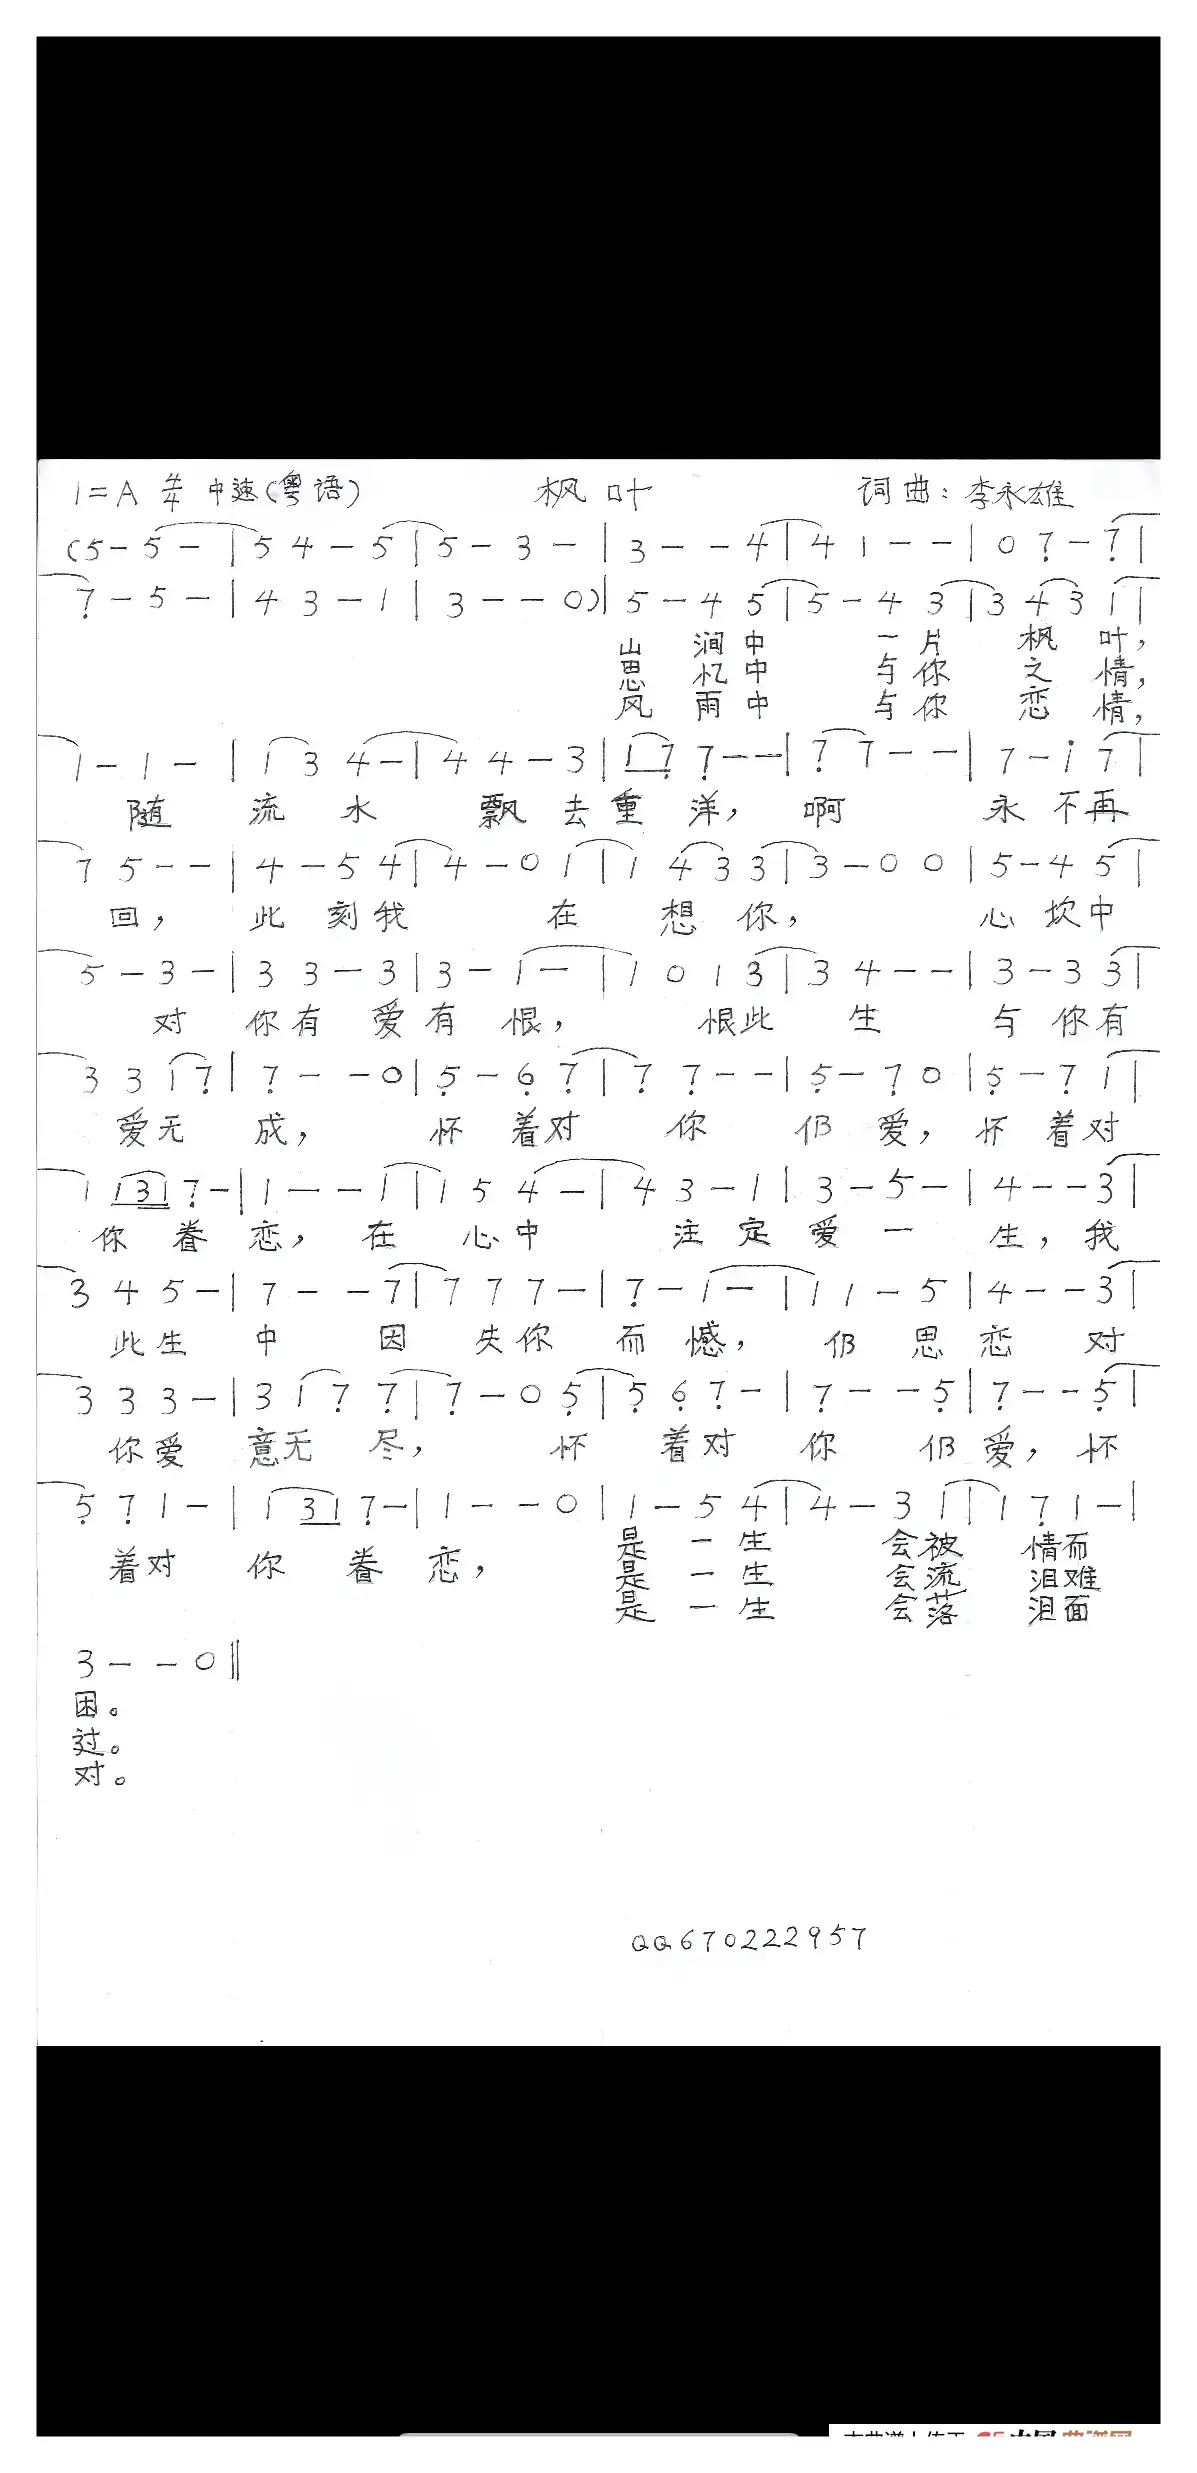 1=A 4/4 中速(粤语) 枫叶 词曲:李永雄
(5-5-|54-5|5-3-|3--4|41--|07-7|
7-5-|43-1|3--0)|5-45|5-43|3431|
山涧中 一片 枫叶,
思忆中 与你 之情,
风雨中 与你 恋情,
1-1-|134-|44-3|177--|77--|7-i7|
随 流水 飘去重洋,啊 永不再
75--|4-54|4-01|1433|3-00|5-45|
回, 此刻我 在想你, 心坎中
5-3-|33-3|3-1-|1013|34--|3-33|
对 你有爱有恨, 恨此生 与你有
3317|7--0|5-67|77--|5-70|5-71|
爱无成, 怀着对 你 仍爱,怀着对
11317-|1--1|154-|43-1|3-5-|4--3|
你眷恋,在心中 注定爱一生,我
345-|7--7|777-|7-1-|11-5|4--3|
此生中 因失你而憾, 仍思恋对
333-|3177|7-05|567-|7--5|7--5|
你爱意无尽, 怀着对你仍爱,怀
571-|1317-|1--0|1-54|4-31|171-|
着对你眷恋, 是一生 会被情而
是一生 会流泪难
是一生 会落泪面
3--0‖
困。
过。
对。
QQ670222957